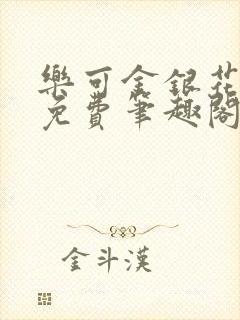 樂可金銀花
免費筆趣閣
金斗漢